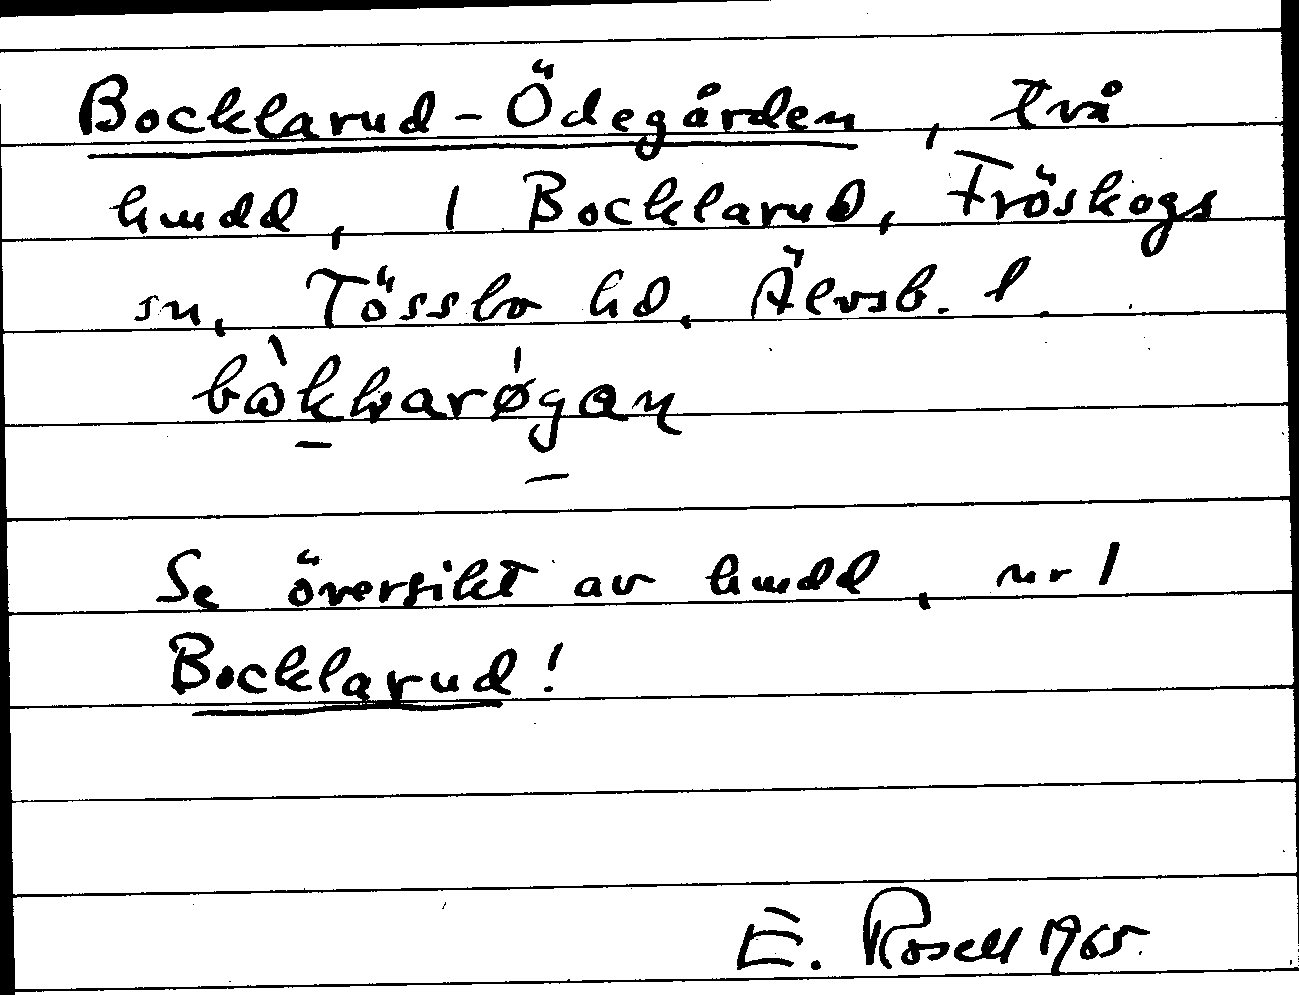 Bocklarud-Ödegården, två
hmdd, 1 Bocklarud, Fröskogs
sn, Tössbo hd. Älvsb. l.
Se översikt av hmdd, nr 1
Bocklarud!
E. Rosell 1965.